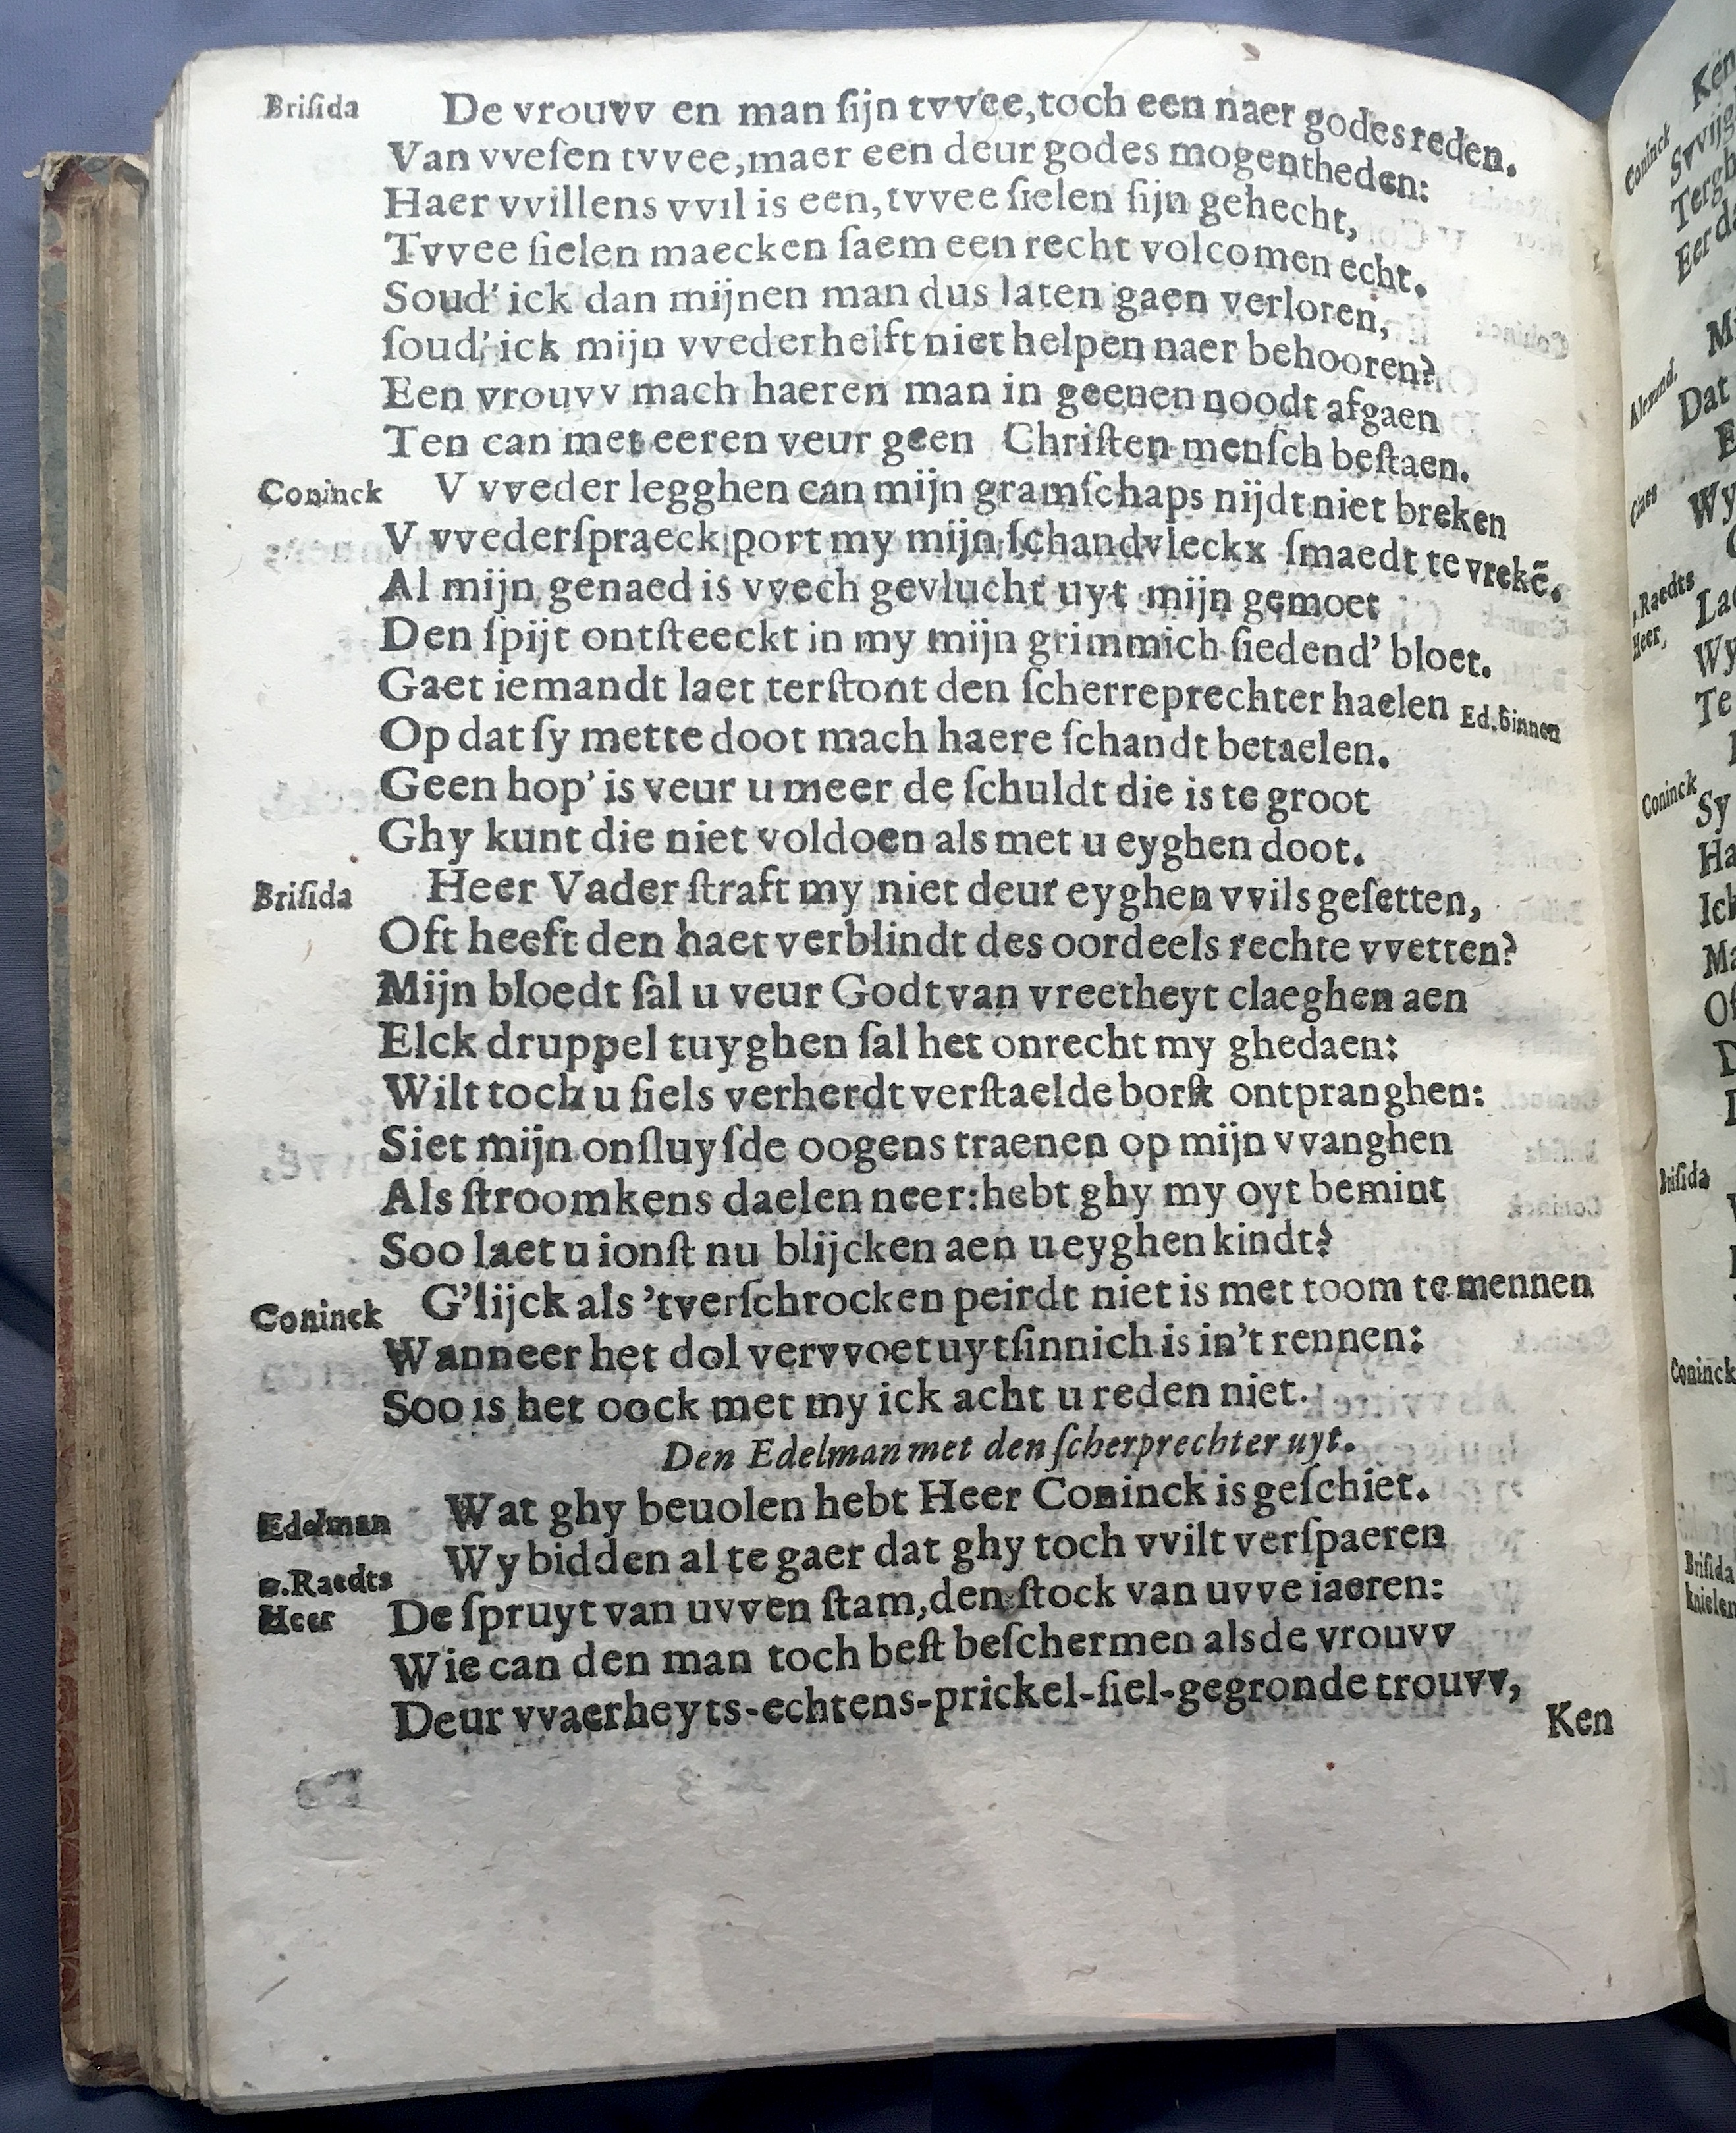 Briſida De vrouvv en man ſijn tvvee, toch een naer godes reden.
Van vveſen tvvee, maer een deur godes mogentheden:
Haer vvillens vvil is een, tvvee ſielen ſijn gehecht,
Tvvee ſielen maecken ſaem een recht volcomen echt.
Soud' ick dan mijnen man dus laten gaen verloren,
ſoud' ick mijn vvederhelft niet helpen naer behooren?
Een vrouvv mach haeren man in geenen noodt afgaen
Ten can met eeren veur geen Chriſten menſch beſtaen.
Coninck V vveder legghen can mijn gramſchaps nijdt niet breken
V vvederſpraeck port my mijn ſchandvleckx ſmaedt te vrekẽ.
Al mijn genaed is vvech gevlucht uyt mijn gemoet
Den ſpijt ontſteeckt in my mijn grimmich ſiedend' bloet.
Gaet iemandt laet terſtont den ſcherreprechter haelen Ed. binnen
Op dat ſy mette doot mach haere ſchandt betaelen.
Geen hop' is veur u meer de ſchuldt die is te groot
Ghy kunt die niet voldoen als met u eyghen doot.
Briſida Heer Vader ſtraft my niet deur eyghen vvils geſetten,
Oft heeft den haet verblindt des oordeels rechte vvetten?
Mijn bloedt ſal u veur Godt van vreetheyt claeghen aen
Elck druppel tuyghen ſal het onrecht my ghedaen:
Wilt toch u ſiels verherdt verſtaelde borſt ontpranghen:
Siet mijn onſluyſde oogens traenen op mijn vvanghen
Als ſtroomkens daelen neer: hebt ghy my oyt bemint
Soo laet u ionſt nu blijcken aen u eyghen kindt?
Coninck G'lijck als 'tverſchrocken peirdt niet is met toom te mennen
Wanneer het dol vervvoet uytſinnich is in't rennen:
Soo is het oock met my ick acht u reden niet.
Den Edelman met den ſcherprechter uyt.
Edelman Wat ghy beuolen hebt Heer Coninck is geſchiet.
2. Raedts Heer Wy bidden al te gaer dat ghy toch vvilt verſpaeren
De ſpruyt van uvven ſtam, den ſtock van uvve iaeren:
Wie can den man toch beſt beſchermen als de vrouvv
Deur vvaerheyts-echtens-prickel-ſiel-gegronde trouvv,
Ken
Coninck
Alemnd.
Dat
Claes
Wy
Raedts
Heer,
Wy
Te
Coninck
Sy
Briſida
Coninck
Briſida
knielen